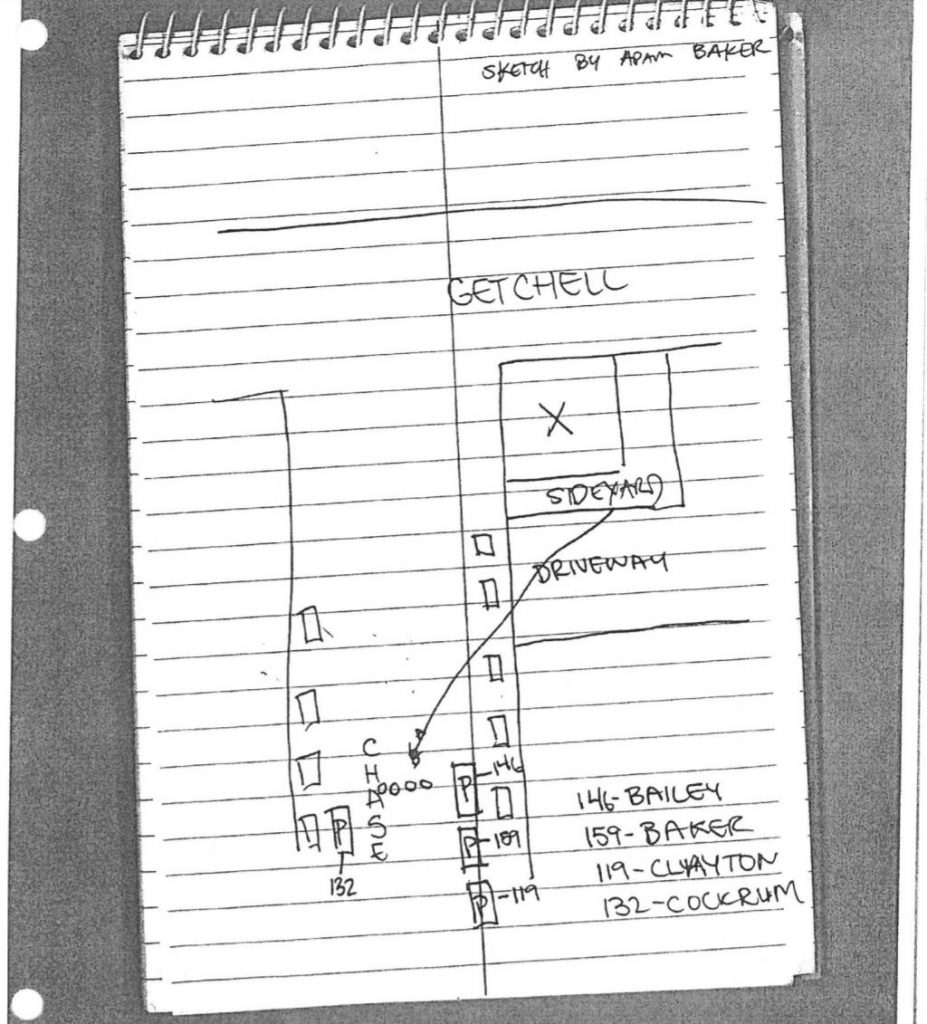 SKETCH BY ADAM BAKER
GETCHELL
X
SIDEYARD
DRIVEWAY
CHASE
P
146
P
159
P
119
P
132
146-BAILEY
159-BAKER
119-CLAYTON
132-COCKRUM